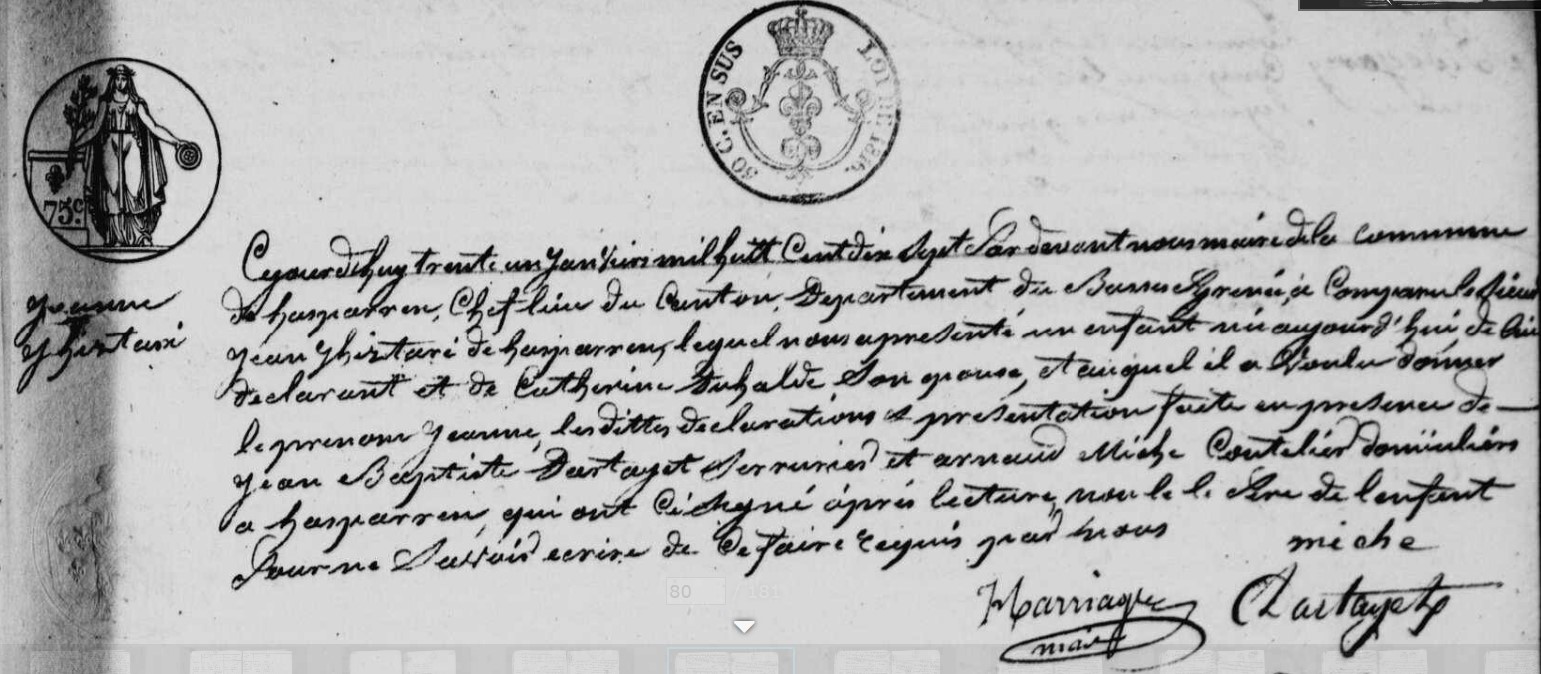 50 C. EN SUS
LOI DE 1816.
75.c
Cejourdhuy trente un Janvier mil huit Cent dix Sept Par devant nous maire de la commune
de hasparren, Chef lieu du Canton, Departement des Basses Pyrenées, a Comparu le Sieur
Jeanne
Yhiztari
Jean Yhiztari de hasparren, lequel nous a presenté un enfant né aujourd'hui, de lui
declarant et de Catherine Duhalde Son epouse, et auquel il a Voulu donner
le prenom Jeanne, les dittes declarations et presentation faite en presence de
Jean Baptiste Dartayet Serrurier et arnaud Miche Coutelier domiciliers
a hasparren, qui ont Ci Signé aprés lecture, non le Pere de l'enfant
Pour ne Savoir ecrire de Ce faire requis par nous
miche
Harriague
Dartayet
maire
80 / 181